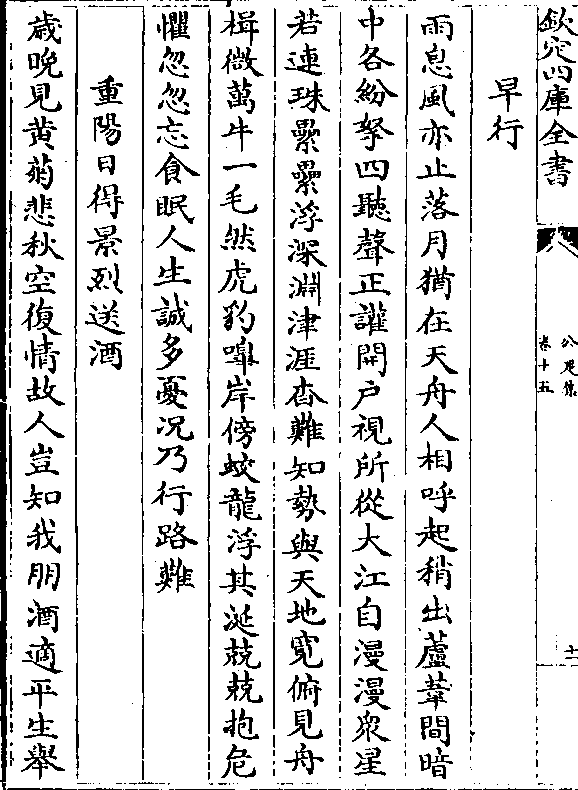 欽定四庫全書
公是集
卷十五
十一
早行
雨息風亦止落月猶在天舟人相呼起稍出蘆葦間暗
中各紛拏四聽聲正讙開户視所從大江自漫漫衆星
若連珠纍纍浮深淵津涯杳難知勢與天地寛俯見舟
楫微萬牛一毛然虎豹嘷岸傍蛟龍浮其涎兢兢抱危
懼忽忽忘食眠人生誠多憂况乃行路難
重陽日得景烈送酒
歳晩見黄菊悲秋空復情故人豈知我朋酒適平生舉